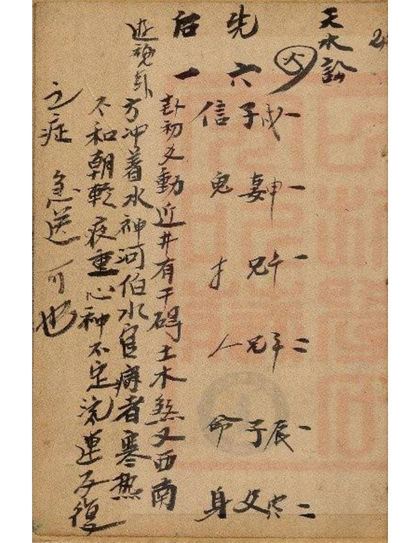 天水訟
先六
后一
遊魂卦
戌一申一午一午二辰一寅二
子妻兄兄子父
信鬼才人命身
卦初爻動近井有干碍土木煞又西南
方冲着水神河伯水官病者寒熱
不和朝輕夜重心种不定流連反復
之症 急送可也